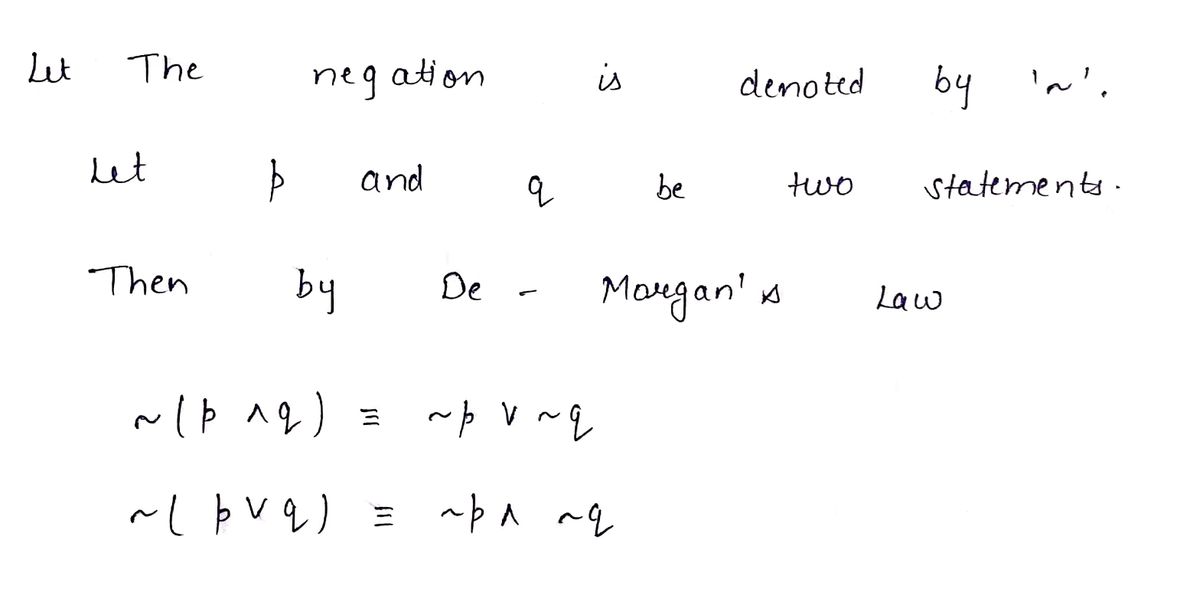 Let The negation is denoted by '~'.
Let p and q be two statements.
Then by De - Morgan's Law
~(p ∧ q) ≡ ~p ∨ ~q
~(p ∨ q) ≡ ~p ∧ ~q